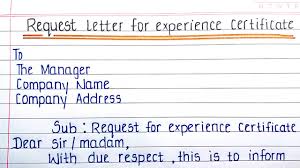 Request Letter for experience Certificate
To
The Manager
Company Name
Company Address
Sub : Request for experience Certificate
Dear sir / madam,
With due respect, this is to inform